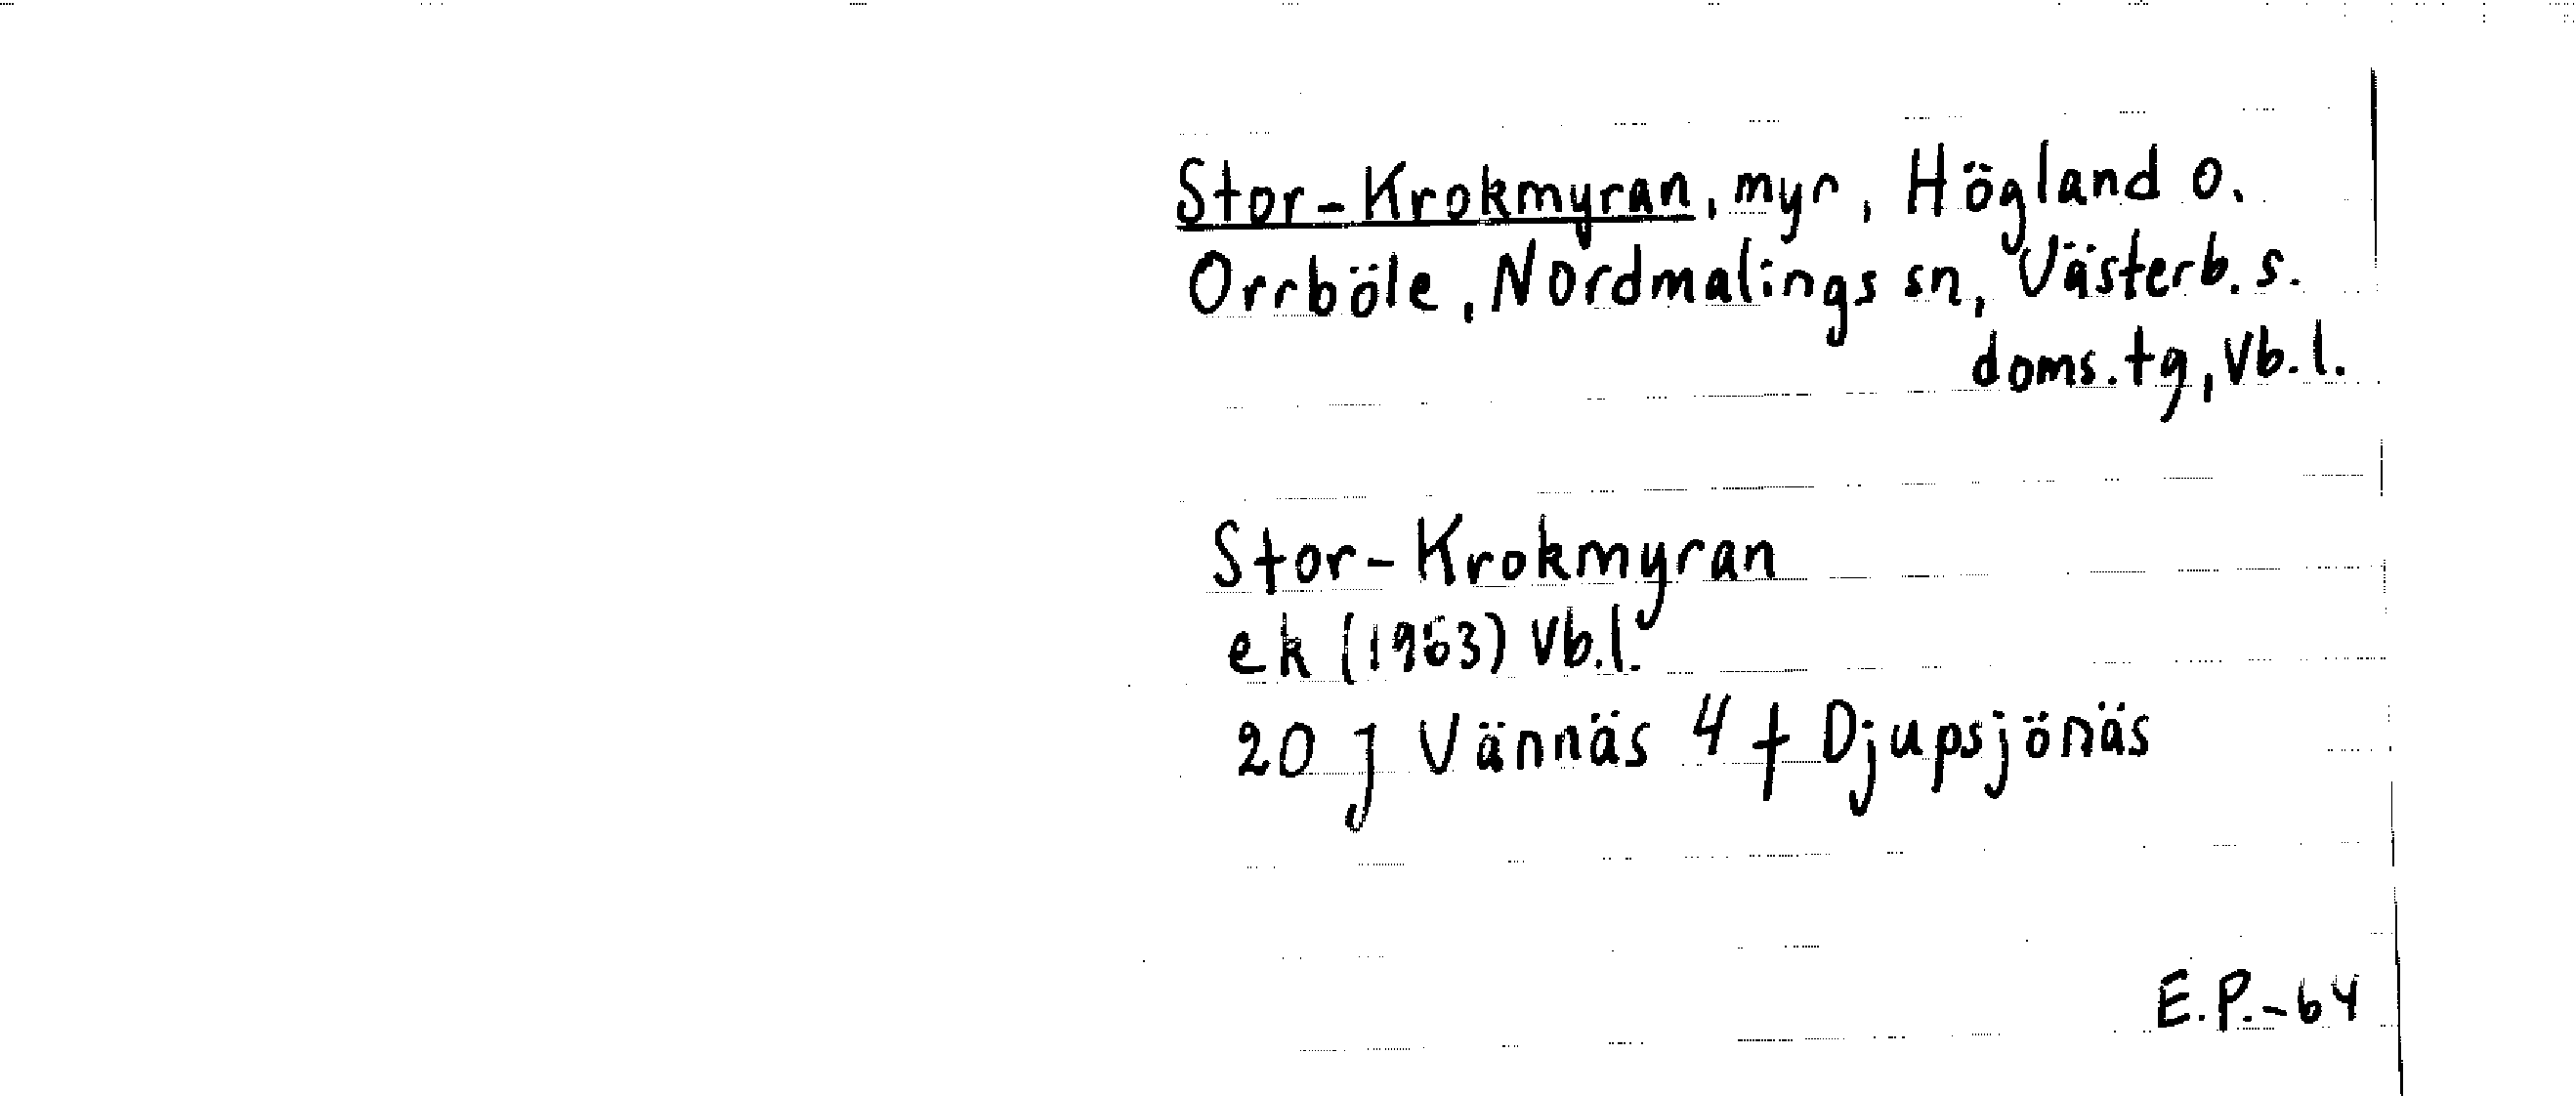 Stor-Krokmyran, myr, Högland o.
Orrböle, Nordmalings sn, Västerb. s.
doms. tg, Vb. l.
Stor-Krokmyran
ek (1963) Vb. l.
20 J Vännäs 4 f Djupsjönäs
E.P.-64